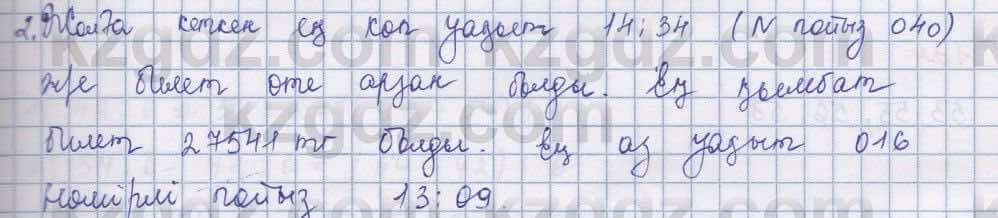 2. Жолға кеткен ең көп уақыт 14:34 (N пойыз 040)
және билет өте арзан болды. Ең қымбат
билет 27541 тг болды. Ең аз уақыт 016
номірлі пойыз 13:09.